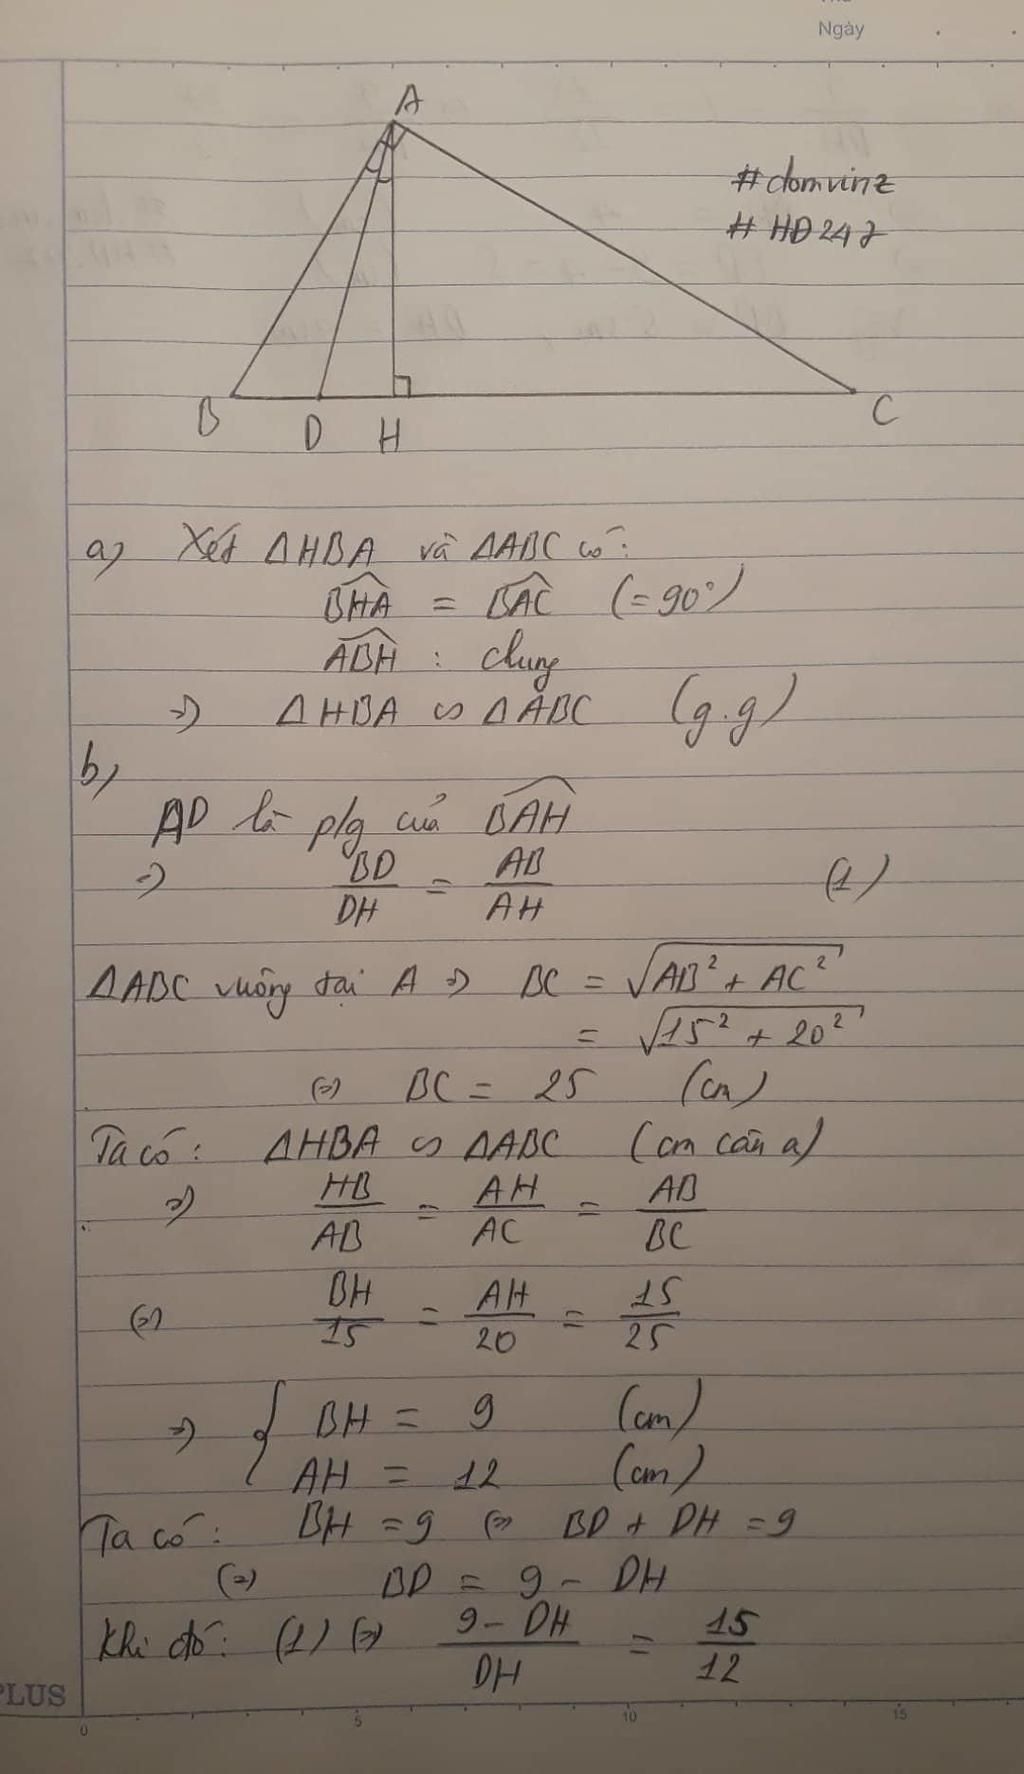 Ngày
A
#domvinz
# HĐ247
B
D
H
C
a) Xét ΔHBA và ΔABC có:
BHA = BAC (=90°)
ABH : chung
=) ΔHBA ∽ ΔABC (g.g)
b)
AD là p/g của BAH
=) BD/DH = AB/AH (1)
ΔABC vuông tại A =) BC = √AB² + AC²
= √15² + 20²
(=) BC = 25 (cm)
Ta có: ΔHBA ∽ ΔABC (cm câu a)
=) HB/AB = AH/AC = AB/BC
(=) BH/15 = AH/20 = 15/25
=) { BH = 9 (cm)
AH = 12 (cm)
Ta có: BH = 9 (=) BD + DH = 9
(=) BD = 9 - DH
Khi đó: (1) (=) 9 - DH/DH = 15/12
PLUS
0 5 10 15